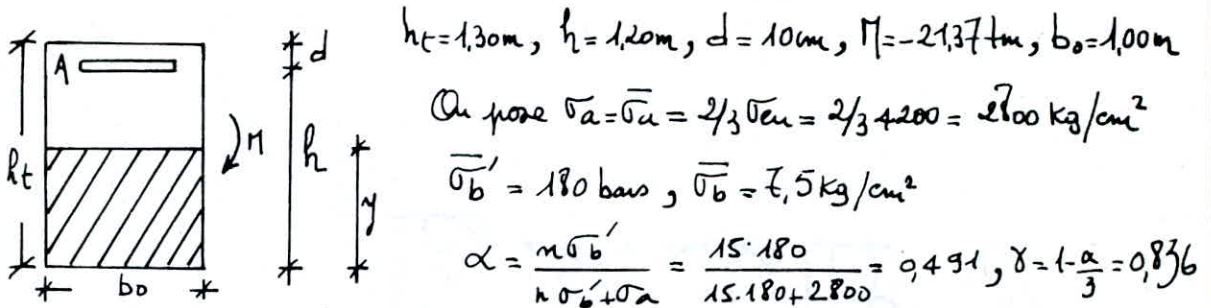 hₜ=1,30m, h=1,20m, d=10cm, M=-21,37tm, b₀=1,00m
On pose σa=σ̅a=2/3 σen=2/3 4200=2800 kg/cm²
σ̅b'=180 bars, σ̅b=7,5kg/cm²
α = nσb'/(nσb'+σa) = 15·180/(15·180+2800) = 0,491, γ=1-α/3=0,836
A
d
hₜ
M
h
y
b₀